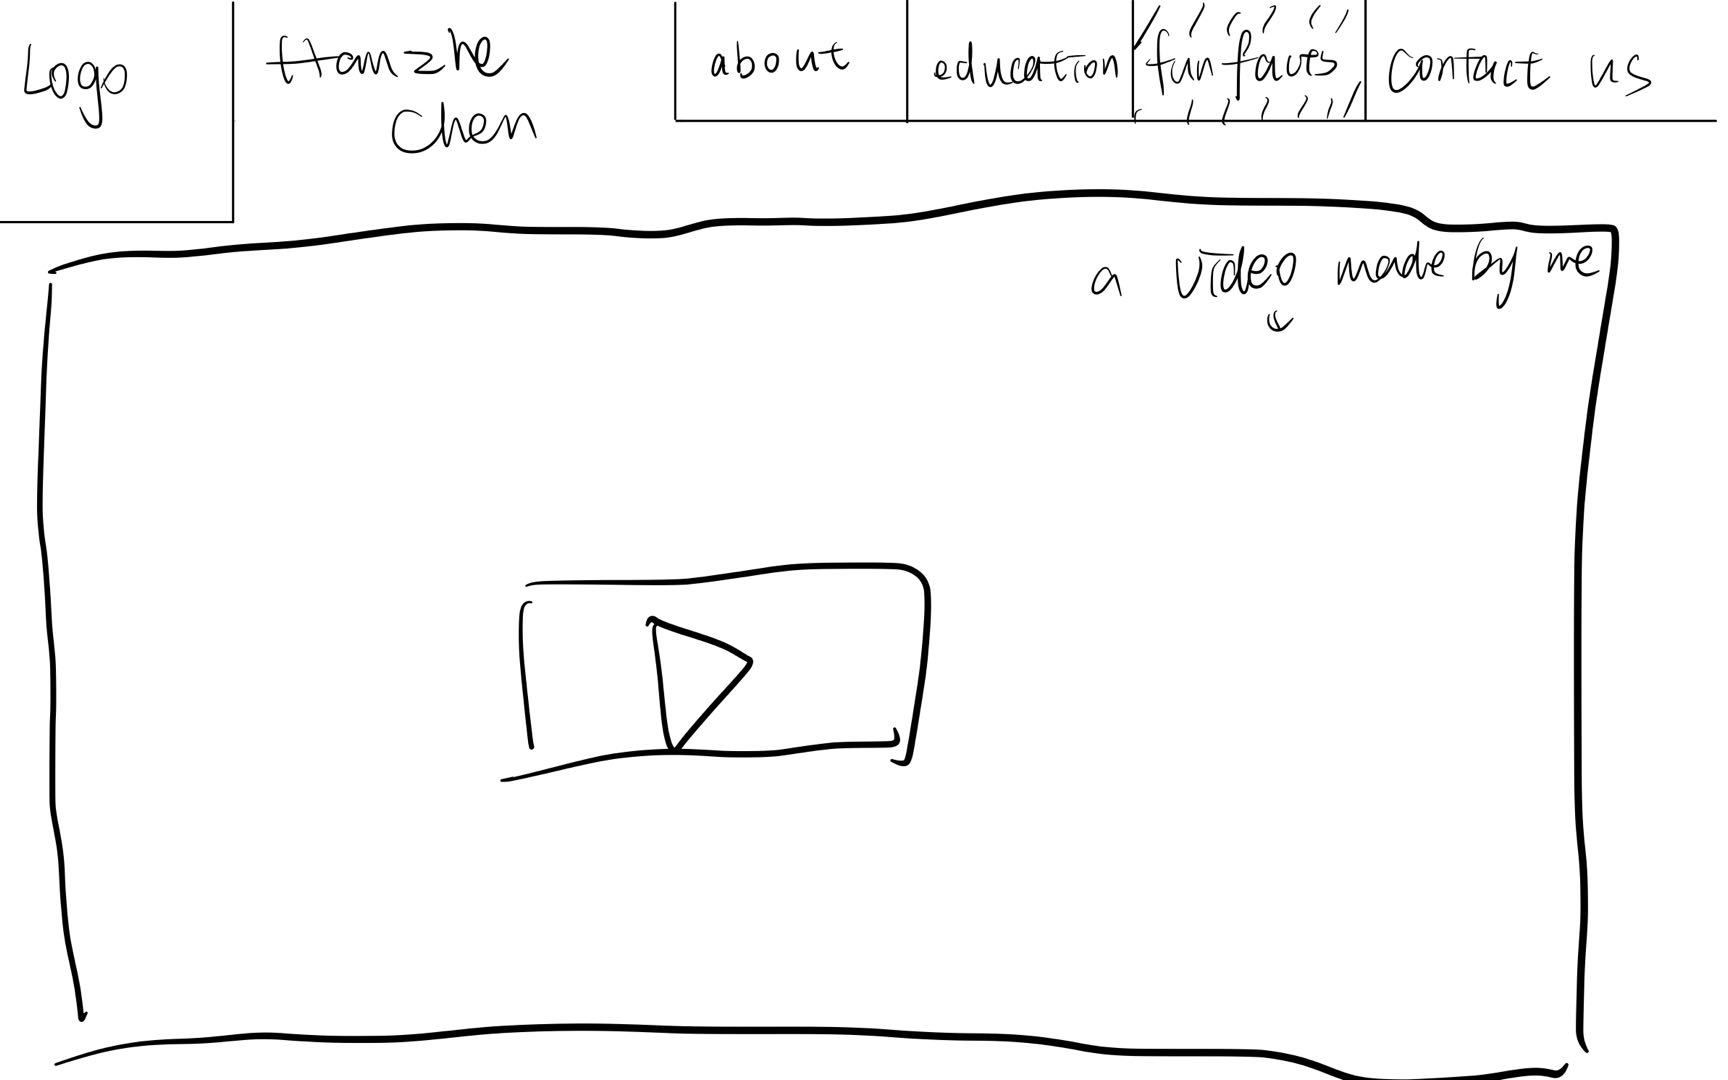 Logo
Hanzhe
Chen
about
education
fun facts
Contact us
a video made by me